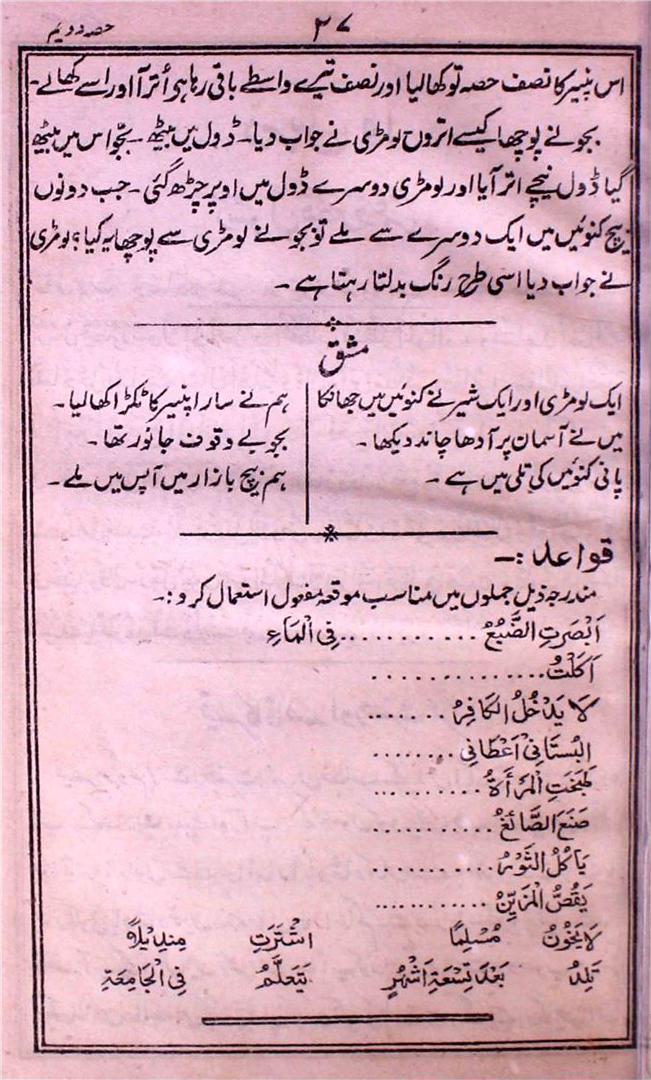 ۳۷ حصہ دویم
اس پنیر کا نصف حصہ تو کھا لیا اور نصف تیرے واسطے باقی رہا ہو اُتر آ اور اسے کھا لے۔
بجو نے پوچھا کیسے اتروں لومڑی نے جواب دیا۔ ڈول میں بیٹھ۔ بجّو اس میں بیٹھ
گیا ڈول نیچے اتر آیا اور لومڑی دوسرے ڈول میں اوپر چڑھ گئی۔ جب دونوں
بیچ کنوئیں میں ایک دوسرے سے ملے تو بجو نے لومڑی سے پوچھا یہ کیا؟ لومڑی
نے جواب دیا اسی طرح رنگ بدلتا رہتا ہے۔
مشق
ایک لومڑی اور ایک شیر نے کنوئیں میں جھانکا
میں نے آسمان پر آدھا چاند دیکھا۔
پانی کنوئیں کی تلی میں ہے۔
ہم نے سارا پنیر کا ٹکڑا کھا لیا۔
بجو بے وقوف جانور تھا۔
ہم بیچ بازار میں آپس میں ملے۔
قواعد:۔
مندرجہ ذیل جملوں میں مناسب موقعہ مفعول استعمال کرو:۔
اَبْصَرَتِ الضَّبُعُ ............ فِی الْمَاءِ
اَکَلْتُ ...............
لَا یَدْخُلُ الْکَافِرُ ........
اَلْبُسْتَانِیُّ اَعْطَانِی ........
طَبَخَتِ الْمَرْأَۃُ ............
صَنَعَ الصَّائِغُ ............
یَاکُلُ الثَّوْرُ ............
یَقُصُّ الْمُزَیِّنُ ............
لَا یَخُوْنُ مُسْلِمًا اِشْتَرَتِ مِنْدِیْلاً
تَلِدُ بَعْدَ تِسْعَۃِ اَشْهُرٍ یَتَعَلَّمُ فِی الْجَامِعَۃِ